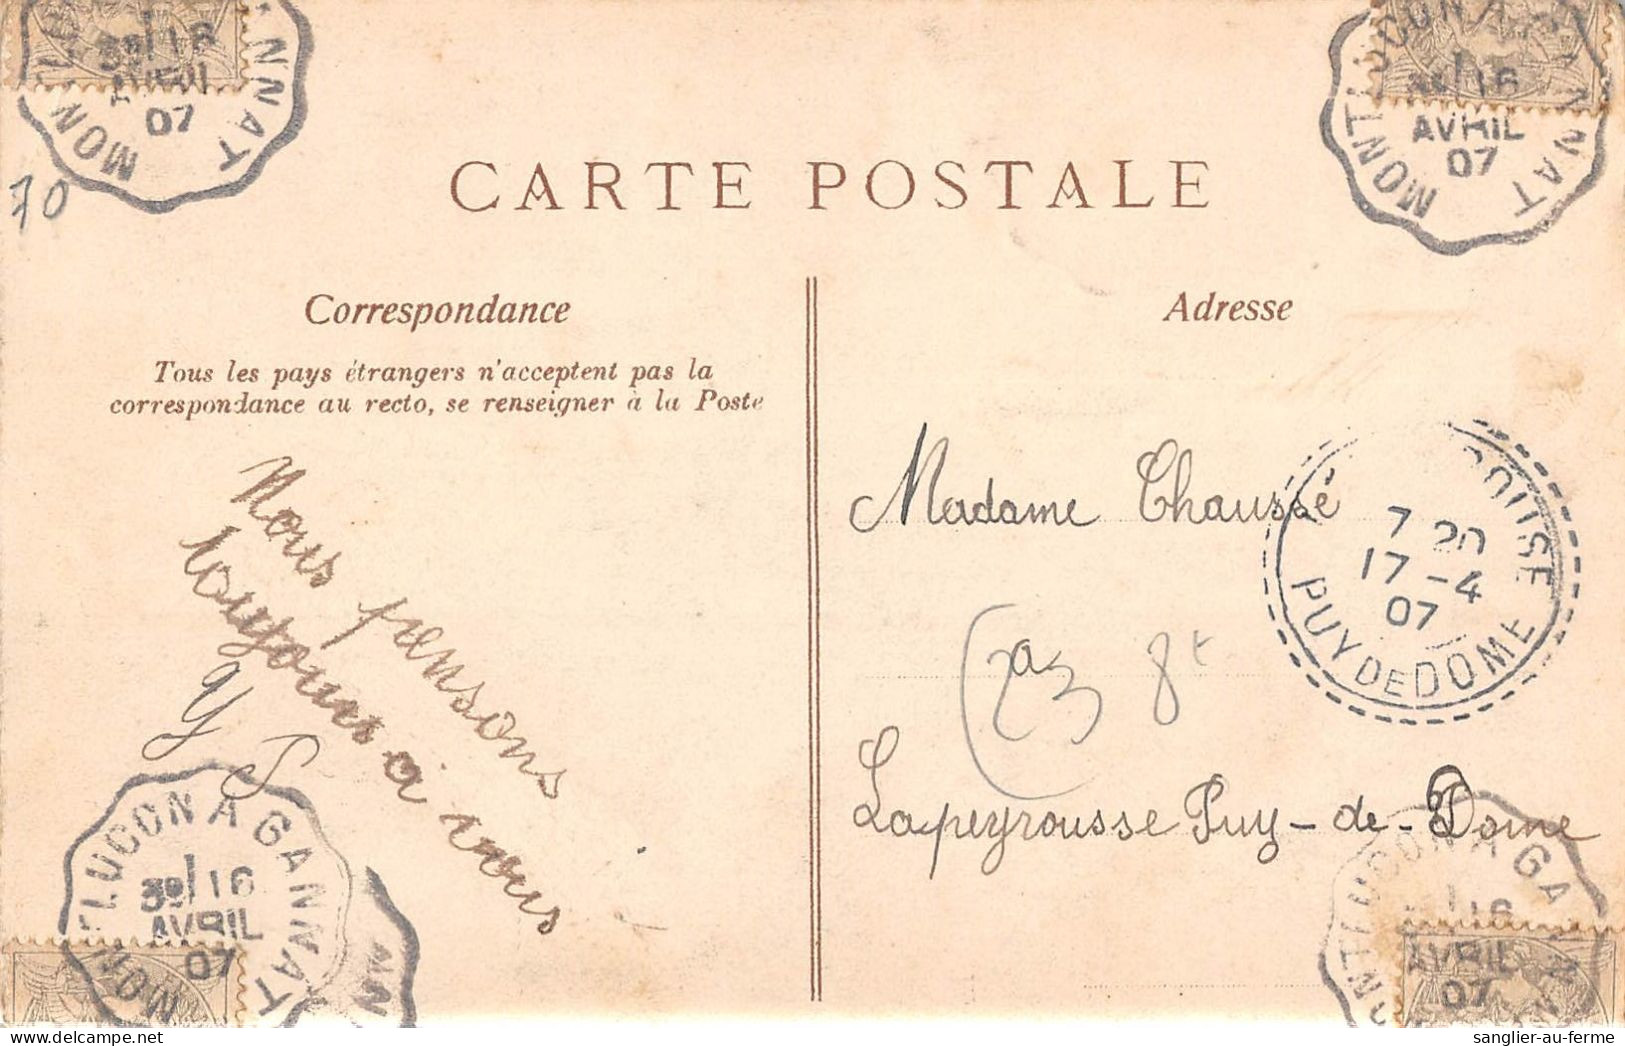 MONTLUCON A GANNAT
3E/16
AVRIL
07
70
CARTE POSTALE
Correspondance
Tous les pays étrangers n'acceptent pas la
correspondance au recto, se renseigner à la Poste
Nous pensons
toujours à vous
Y S
Adresse
Madame Chaussé
Lapeyrousse Puy-de-Dome
7 20
17-4
07
PUY DE DOME
8t
MONTLUCON A GANNAT
16
AVRIL
07
LUCON A GANNAT
16
AVRIL
07
MONTLUCON A GA
16
AVRIL
07
sanglier-au-ferme